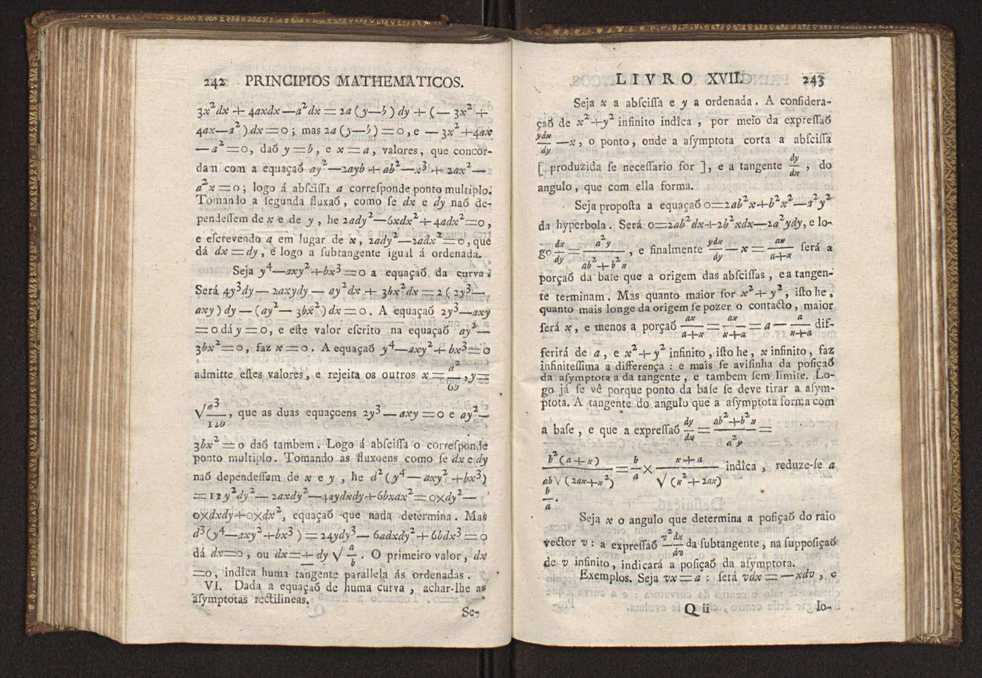 242 PRINCIPIOS MATHEMATICOS.
3x²dx + 4axdx — a²dx = 2a (y—b) dy + (— 3x² +
4ax—a²) dx = 0; mas 2a (y—b) = 0, e — 3x² + 4ax
— a² = 0, daõ y = b, e x = a, valores, que concor-
dam com a equaçaõ ay² — 2ayb + ab² — x³ + 2ax² —
a²x = 0; logo á abſciſſa a correſponde ponto multiplo.
Tomando a ſegunda fluxaõ, como ſe dx e dy naõ de-
pendeſſem de x e de y, he 2ady² — 6xdx² + 4adx² = 0,
e eſcrevendo a em lugar de x, 2ady² — 2adx² = 0, que
dá dx = dy, e logo a ſubtangente igual á ordenada.
Seja y⁴ — axy² + bx³ = 0 a equaçaõ da curva:
Será 4y³dy — 2axydy — ay²dx + 3bx²dx = 2 (2y³ —
axy) dy — (ay² — 3bx²) dx = 0. A equaçaõ 2y³ — axy
= 0 dá y = 0, e eſte valor eſcrito na equaçaõ ay² —
3bx² = 0, faz x = 0. A equaçaõ y⁴ — axy² + bx³ = 0
admitte eſtes valores, e rejeita os outros x = a²/6b, y =
√a³/12b, que as duas equaçoens 2y³ — axy = 0 e ay² —
3bx² = 0 daõ tambem. Logo á abſciſſa 0 correſponde
ponto multiplo. Tomando as fluxoens como ſe dx e dy
naõ dependeſſem de x e y, he d² (y⁴ — axy² + bx³)
= 12y²dy² — 2axdy² — 4aydxdy + 6bxdx² = 0×dy² —
0×dxdy + 0×dx², equaçaõ que nada determina. Mas
d³ (y⁴ — axy² + bx³) = 24ydy³ — 6adxdy² + 6bdx³ = 0
dá dx = 0, ou dx = + dy √a/b. O primeiro valor, dx
= 0, indica huma tangente parallela ás ordenadas.
VI. Dada a equaçaõ de huma curva, achar-lhe as
aſymptotas rectilineas.
Se-
LIVRO XVII. 243
Seja x a abſciſſa e y a ordenada. A conſidera-
çaõ de x² + y² infinito indica, por meio da expreſſaõ
ydx/dy — x, o ponto, onde a aſymptota corta a abſciſſa
[ produzida ſe neceſſario for ], e a tangente dy/dx, do
angulo, que com ella forma.
Seja propoſta a equaçaõ 0 = 2ab²x + b²x² — a²y²
da hyperbola. Será 0 = 2ab²dx + 2b²xdx — 2a²ydy, e lo-
go dx/dy = a²y/ab² + b²x, e finalmente ydx/dy — x = ax/a+x ſerá a
porçaõ da baſe que a origem das abſciſſas, e a tangen-
te terminam. Mas quanto maior for x² + y², iſto he,
quanto mais longe da origem ſe pozer o contacto, maior
ſerá x, e menos a porçaõ ax/a+x = ax/x+a = a — a/x+a dif-
ferirá de a, e x² + y² infinito, iſto he, x infinito, faz
infiniteſſima a differença: e mais ſe aviſinha da poſiçaõ
da aſymptota a da tangente, e tambem ſem limite. Lo-
go já ſe vê porque ponto da baſe ſe deve tirar a aſym-
ptota. A tangente do angulo que a aſymptota forma com
a baſe, e que a expreſſaõ dy/dx = ab² + b²x/a²y =
b² (a+x)/ab√(2ax+x²) = b/a × x+a/√(x²+2ax) indica, reduze-ſe a
b/a.
Seja x o angulo que determina a poſiçaõ do raio
vector v: a expreſſaõ v²dx/dv da ſubtangente, na ſuppoſiçaõ
de v infinito, indicará a poſiçaõ da aſymptota.
Exemplos. Seja vx = a: ſerá vdx = — xdv, e
Q ii lo-